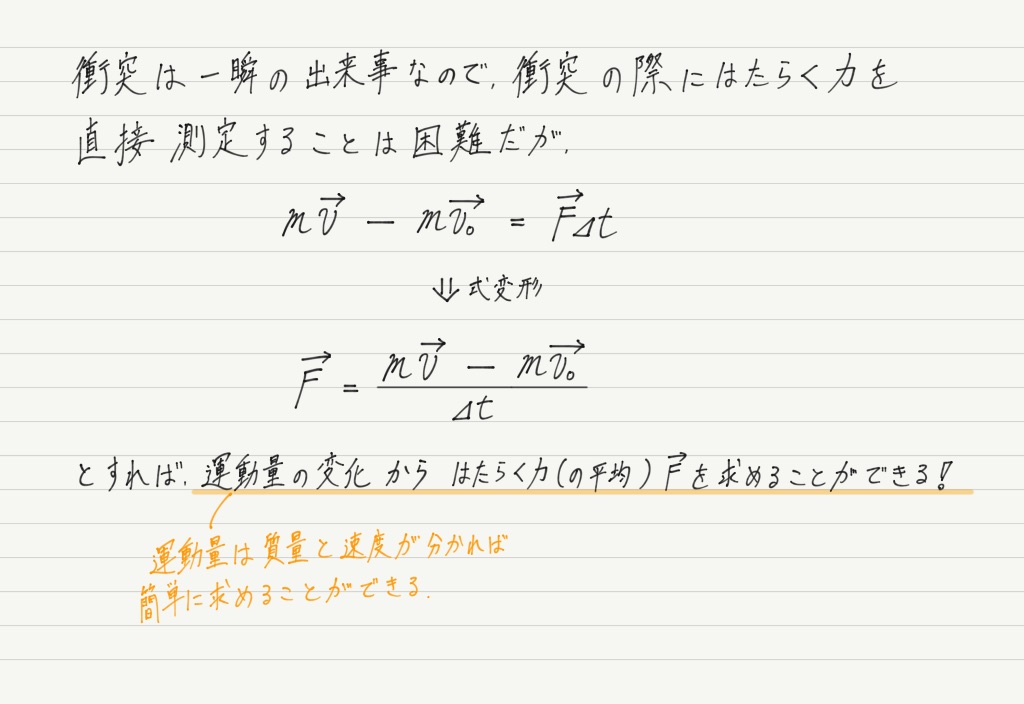 衝突は一瞬の出来事なので,衝突の際にはたらく力を
直接測定することは困難だが,
m\vec{v} − m\vec{v₀} = \vec{F}Δt
⇓ 式変形
\vec{F} = \frac{m\vec{v} − m\vec{v₀}}{Δt}
とすれば,運動量の変化からはたらく力(の平均)\vec{F}を求めることができる!
運動量は質量と速度が分かれば
簡単に求めることができる.